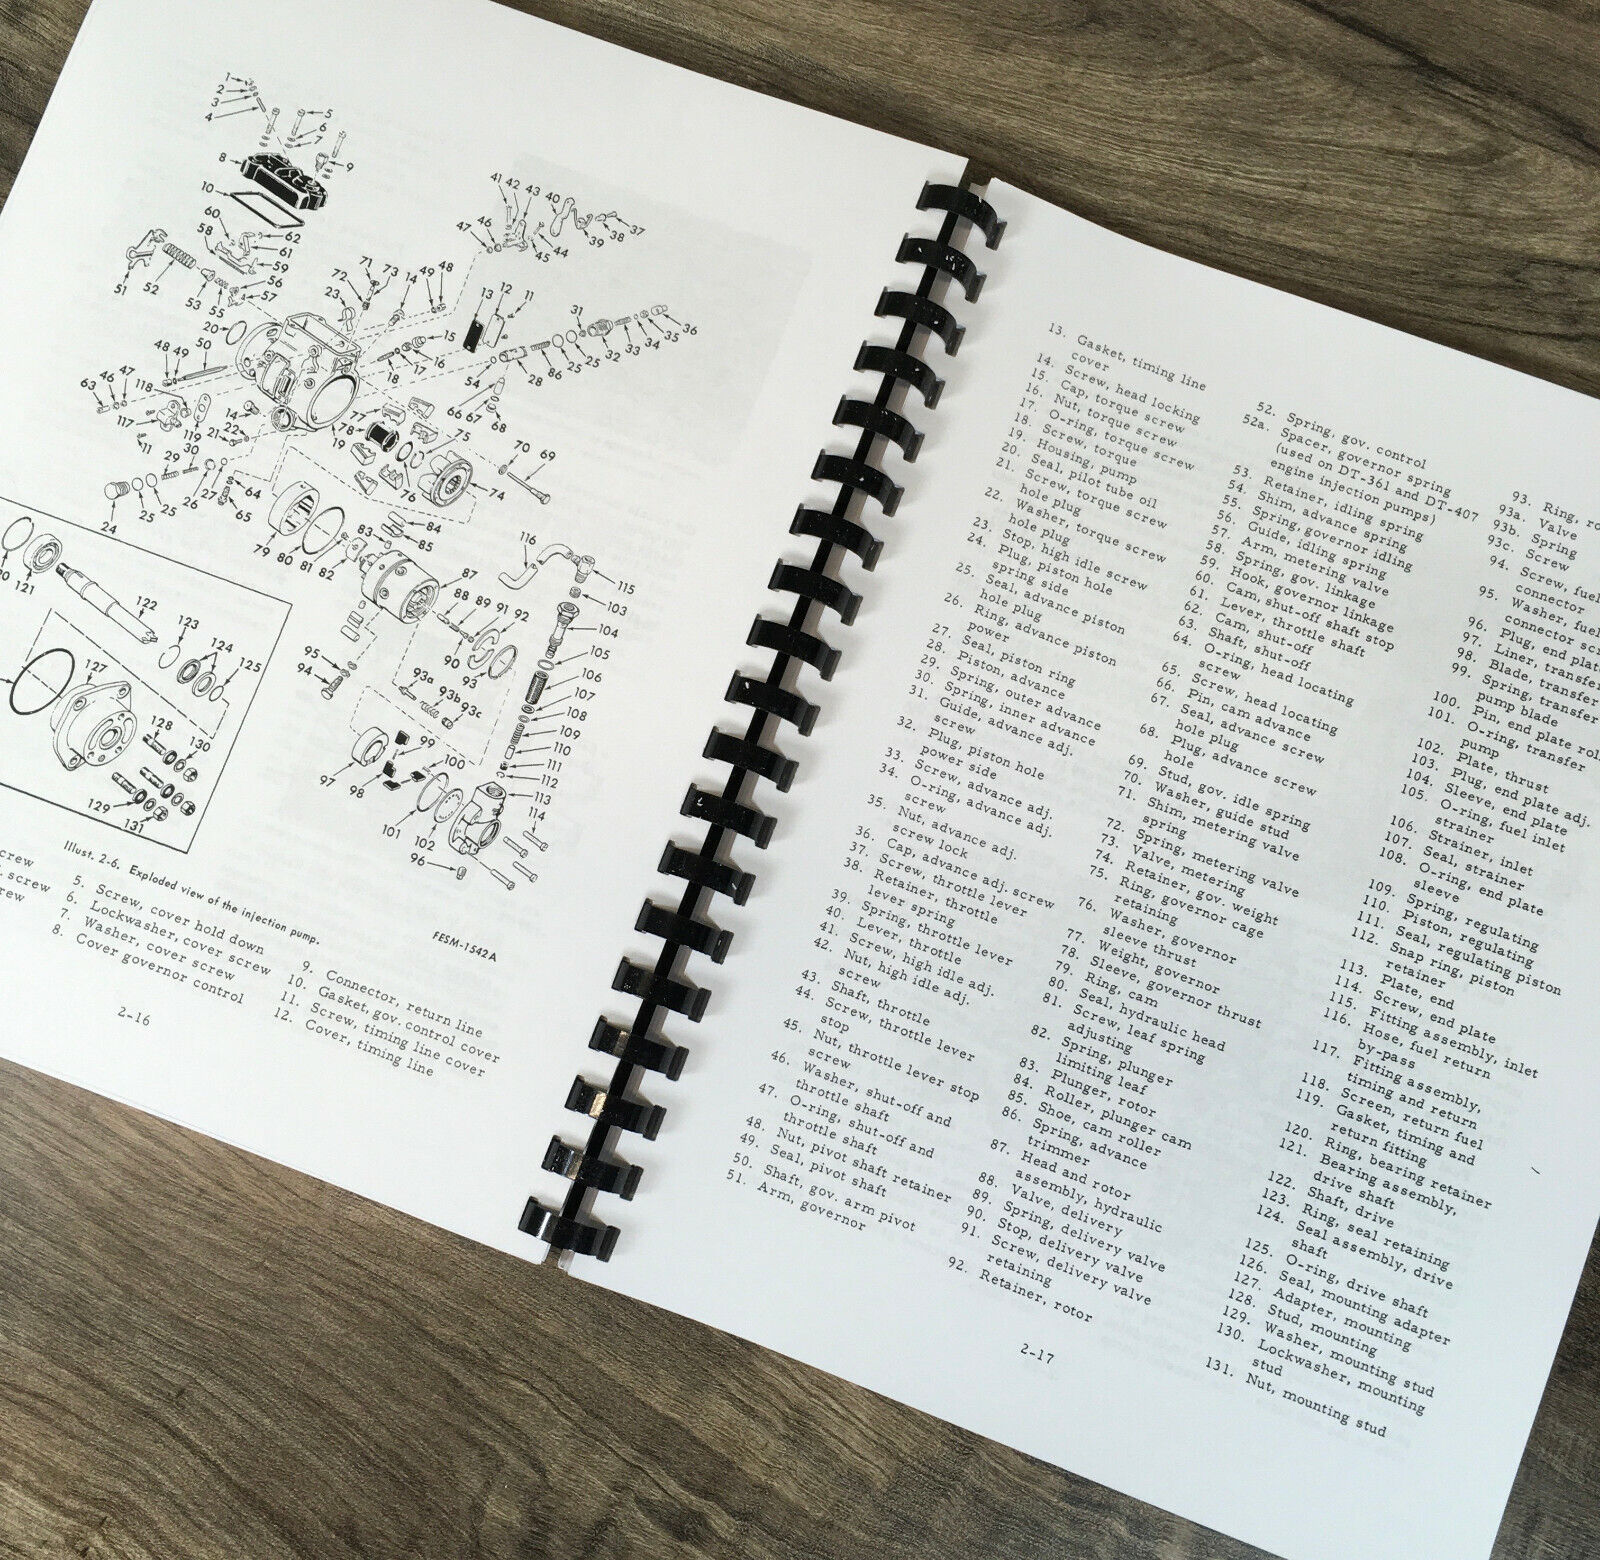 Illust. 2-6. Exploded view of the injection pump.
FESM-1542A
crew
screw
rew
5. Screw, cover hold down
6. Lockwasher, cover screw
7. Washer, cover screw
8. Cover governor control
9. Connector, return line
10. Gasket, gov. control cover
11. Screw, timing line cover
12. Cover, timing line
2-16
13. Gasket, timing line
cover
14. Screw, head locking
15. Cap, torque screw
16. Nut, torque screw
17. O-ring, torque screw
18. Screw, torque
19. Housing, pump
20. Seal, pilot tube oil
hole plug
21. Screw, torque screw
hole plug
22. Washer, torque screw
hole plug
23. Stop, high idle screw
24. Plug, piston hole
spring side
25. Seal, advance piston
hole plug
26. Ring, advance piston
power
27. Seal, piston ring
28. Piston, advance
29. Spring, outer advance
30. Spring, inner advance
31. Guide, advance adj.
screw
32. Plug, piston hole
power side
33. Screw, advance adj.
34. O-ring, advance adj.
screw
35. Nut, advance adj.
screw lock
36. Cap, advance adj. screw
37. Screw, throttle lever
38. Retainer, throttle
lever spring
39. Spring, throttle lever
40. Lever, throttle
41. Screw, high idle adj.
42. Nut, high idle adj.
screw
43. Shaft, throttle
44. Screw, throttle lever
stop
45. Nut, throttle lever stop
screw
46. Washer, shut-off and
throttle shaft
47. O-ring, shut-off and
throttle shaft
48. Nut, pivot shaft retainer
49. Seal, pivot shaft
50. Shaft, gov. arm pivot
51. Arm, governor
52. Spring, gov. control
52a. Spacer, governor spring
(used on DT-361 and DT-407
engine injection pumps)
53. Retainer, idling spring
54. Shim, advance spring
55. Spring, governor idling
56. Guide, idling spring
57. Arm, metering valve
58. Spring, gov. linkage
59. Hook, governor linkage
60. Cam, shut-off shaft stop
61. Lever, throttle shaft
62. Cam, shut-off
63. Shaft, shut-off
64. O-ring, head locating
screw
65. Screw, head locating
66. Pin, cam advance
67. Seal, advance screw
hole plug
68. Plug, advance screw
hole
69. Stud, gov. idle spring
70. Washer, guide stud
71. Shim, metering valve
spring
72. Spring, metering valve
73. Valve, metering
74. Retainer, gov. weight
75. Ring, governor cage
retaining
76. Washer, governor
sleeve thrust
77. Weight, governor
78. Sleeve, governor thrust
79. Ring, cam
80. Seal, hydraulic head
81. Screw, leaf spring
adjusting
82. Spring, plunger
limiting leaf
83. Plunger, rotor
84. Roller, plunger cam
85. Shoe, cam roller
86. Spring, advance
trimmer
87. Head and rotor
assembly, hydraulic
88. Valve, delivery
89. Spring, delivery valve
90. Stop, delivery valve
91. Screw, delivery valve
retaining
92. Retainer, rotor
93. Ring,
93a. Valve
93b. Spring
93c. Screw
94. Screw, fuel
connector
95. Washer, fuel
connector
96. Plug, end plate
97. Liner, transfer
98. Blade, transfer
99. Spring, transfer
pump blade
100. Pin, end plate
101. O-ring, transfer
pump
102. Plate, thrust
103. Plug, end plate adj.
104. Sleeve, end plate
105. O-ring, fuel inlet
strainer
106. Strainer, inlet
107. Seal, strainer
108. O-ring, end plate
sleeve
109. Spring, regulating
110. Piston, regulating
111. Seal, regulating piston
112. Snap ring, piston
retainer
113. Plate, end
114. Screw, end plate
115. Fitting assembly, inlet
116. Hose, fuel return
by-pass
117. Fitting assembly,
timing and return
118. Screen, return fuel
119. Gasket, timing and
return fitting
120. Ring, bearing retainer
121. Bearing assembly,
drive shaft
122. Shaft, drive
123. Ring, seal retaining
124. Seal assembly, drive
shaft
125. O-ring, drive shaft
126. Seal, mounting adapter
127. Adapter, mounting
128. Stud, mounting
129. Washer, mounting stud
130. Lockwasher, mounting
stud
131. Nut, mounting stud
2-17